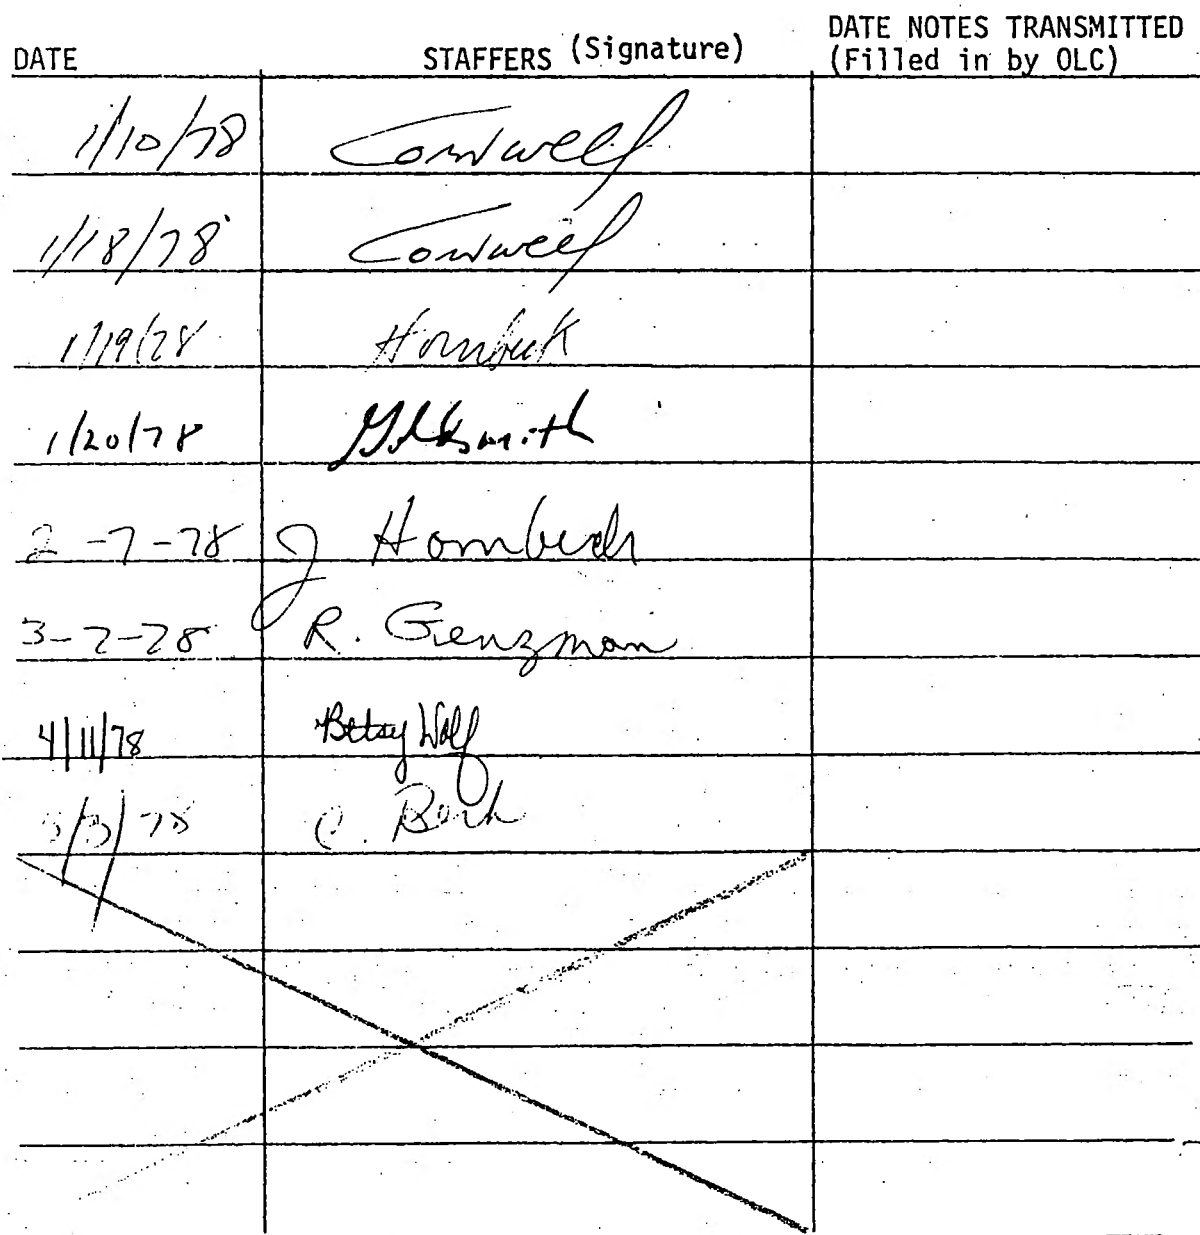 DATE NOTES TRANSMITTED
DATE STAFFERS (Signature) (Filled in by OLC)
1/10/78 Cornwell
1/18/78 Cornwell
1/19/78 Hornbeck
1/20/78 Goldsmith
2-7-78 J Hornbeck
3-7-78 R. Genzman
4/11/78 Betsy Wolf
5/3/78 C. Berk